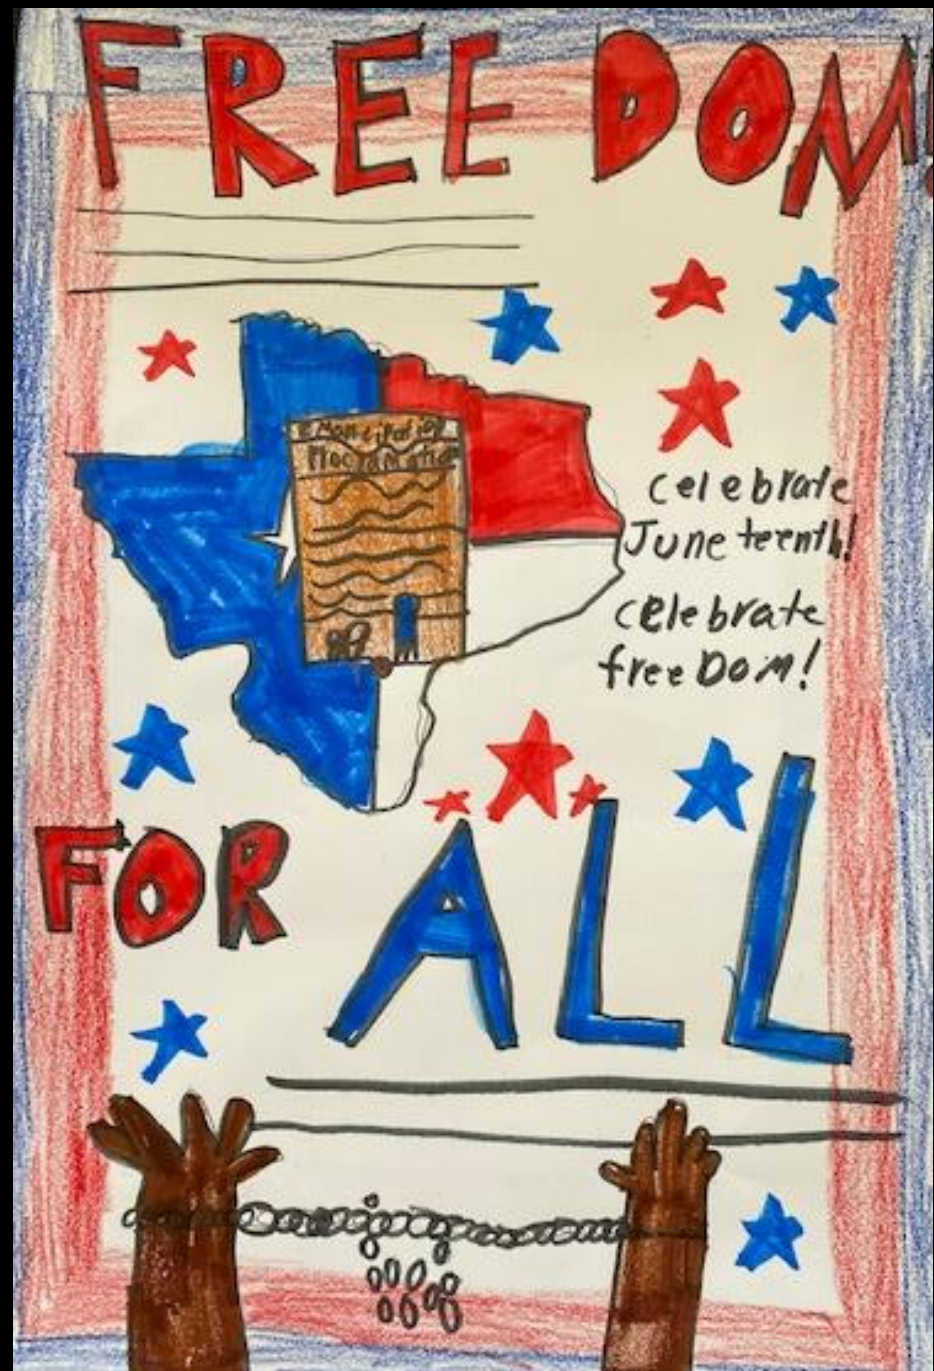 FREEDOM!
Emancipation
Proclamation
celebrate
Juneteenth!
celebrate
freeDom!
FOR ALL